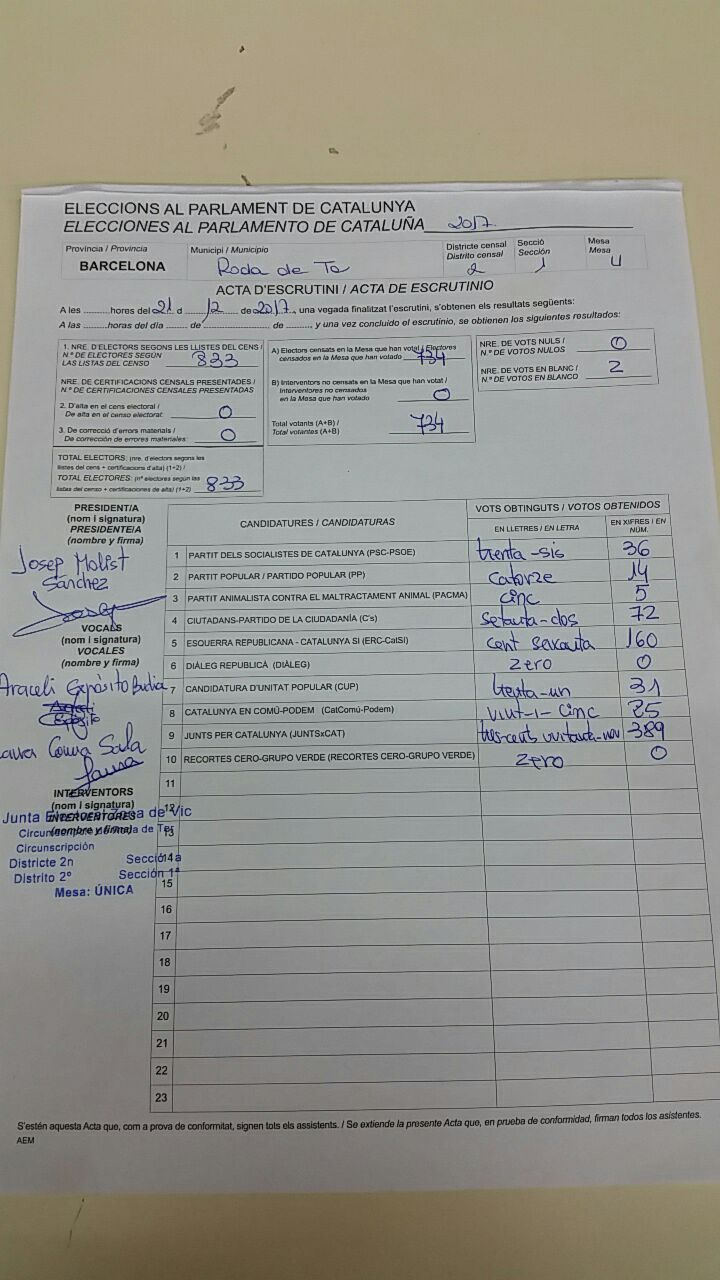 ELECCIONS AL PARLAMENT DE CATALUNYA
ELECCIONES AL PARLAMENTO DE CATALUÑA 2017
Província / Provincia
BARCELONA
Municipi / Municipio
Roda de Te
Districte censal
Distrito censal
2
Secció
Sección
1
Mesa
Mesa
U
ACTA D'ESCRUTINI / ACTA DE ESCRUTINIO
A les ..........hores del 21 d ......12...... de 2017, una vegada finalitzat l'escrutini, s'obtenen els resultats següents:
A las ..........horas del día ........ de ........................... de ........., y una vez concluido el escrutinio, se obtienen los siguientes resultados:
1. NRE. D'ELECTORS SEGONS LES LLISTES DEL CENS /
N.º DE ELECTORES SEGÚN
LAS LISTAS DEL CENSO 833
NRE. DE CERTIFICACIONS CENSALS PRESENTADES /
N.º DE CERTIFICACIONES CENSALES PRESENTADAS
2. D'alta en el cens electoral /
De alta en el censo electoral: 0
3. De correcció d'errors materials /
De corrección de errores materiales: 0
TOTAL ELECTORS: (nre. d'electors segons les
llistes del cens + certificacions d'alta) (1+2) /
TOTAL ELECTORES: (nº electores según las
listas del censo + certificaciones de alta) (1+2) 833
A) Electors censats en la Mesa que han votat / Electores
censados en la Mesa que han votado 734
B) Interventors no censats en la Mesa que han votat /
Interventores no censados
en la Mesa que han votado 0
Total votants (A+B) /
Total votantes (A+B) 734
NRE. DE VOTS NULS /
N.º DE VOTOS NULOS 0
NRE. DE VOTS EN BLANC /
N.º DE VOTOS EN BLANCO 2
PRESIDENT/A
(nom i signatura)
PRESIDENTE/A
(nombre y firma)
Josep Molist
Sánchez
Josep
VOCALS
(nom i signatura)
VOCALES
(nombre y firma)
Araceli Expósito
Expósito
Laura Coma Sala
Laura
INTERVENTORS
(nom i signatura)
INTERVENTORES
(nombre y firma)
Junta Electoral Zona de Vic
Circunscripció de Roda de Ter
Circunscripción
Districte 2n Secció 1a
Distrito 2º Sección 1ª
Mesa: ÚNICA
CANDIDATURES / CANDIDATURAS
VOTS OBTINGUTS / VOTOS OBTENIDOS
EN LLETRES / EN LETRA
EN XIFRES / EN NÚM.
1 PARTIT DELS SOCIALISTES DE CATALUNYA (PSC-PSOE) trenta-sis 36
2 PARTIT POPULAR / PARTIDO POPULAR (PP) catorze 14
3 PARTIT ANIMALISTA CONTRA EL MALTRACTAMENT ANIMAL (PACMA) cinc 5
4 CIUTADANS-PARTIDO DE LA CIUDADANÍA (C's) setanta-dos 72
5 ESQUERRA REPUBLICANA - CATALUNYA SÍ (ERC-CatSí) cent seixanta 160
6 DIÀLEG REPUBLICÀ (DIÀLEG) zero 0
7 CANDIDATURA D'UNITAT POPULAR (CUP) trenta-un 31
8 CATALUNYA EN COMÚ-PODEM (CatComú-Podem) vint-i-cinc 25
9 JUNTS PER CATALUNYA (JUNTSxCAT) tres-cents vuitanta-nou 389
10 RECORTES CERO-GRUPO VERDE (RECORTES CERO-GRUPO VERDE) zero 0
11
12
13
14
15
16
17
18
19
20
21
22
23
S'estén aquesta Acta que, com a prova de conformitat, signen tots els assistents. / Se extiende la presente Acta que, en prueba de conformidad, firman todos los asistentes.
AEM